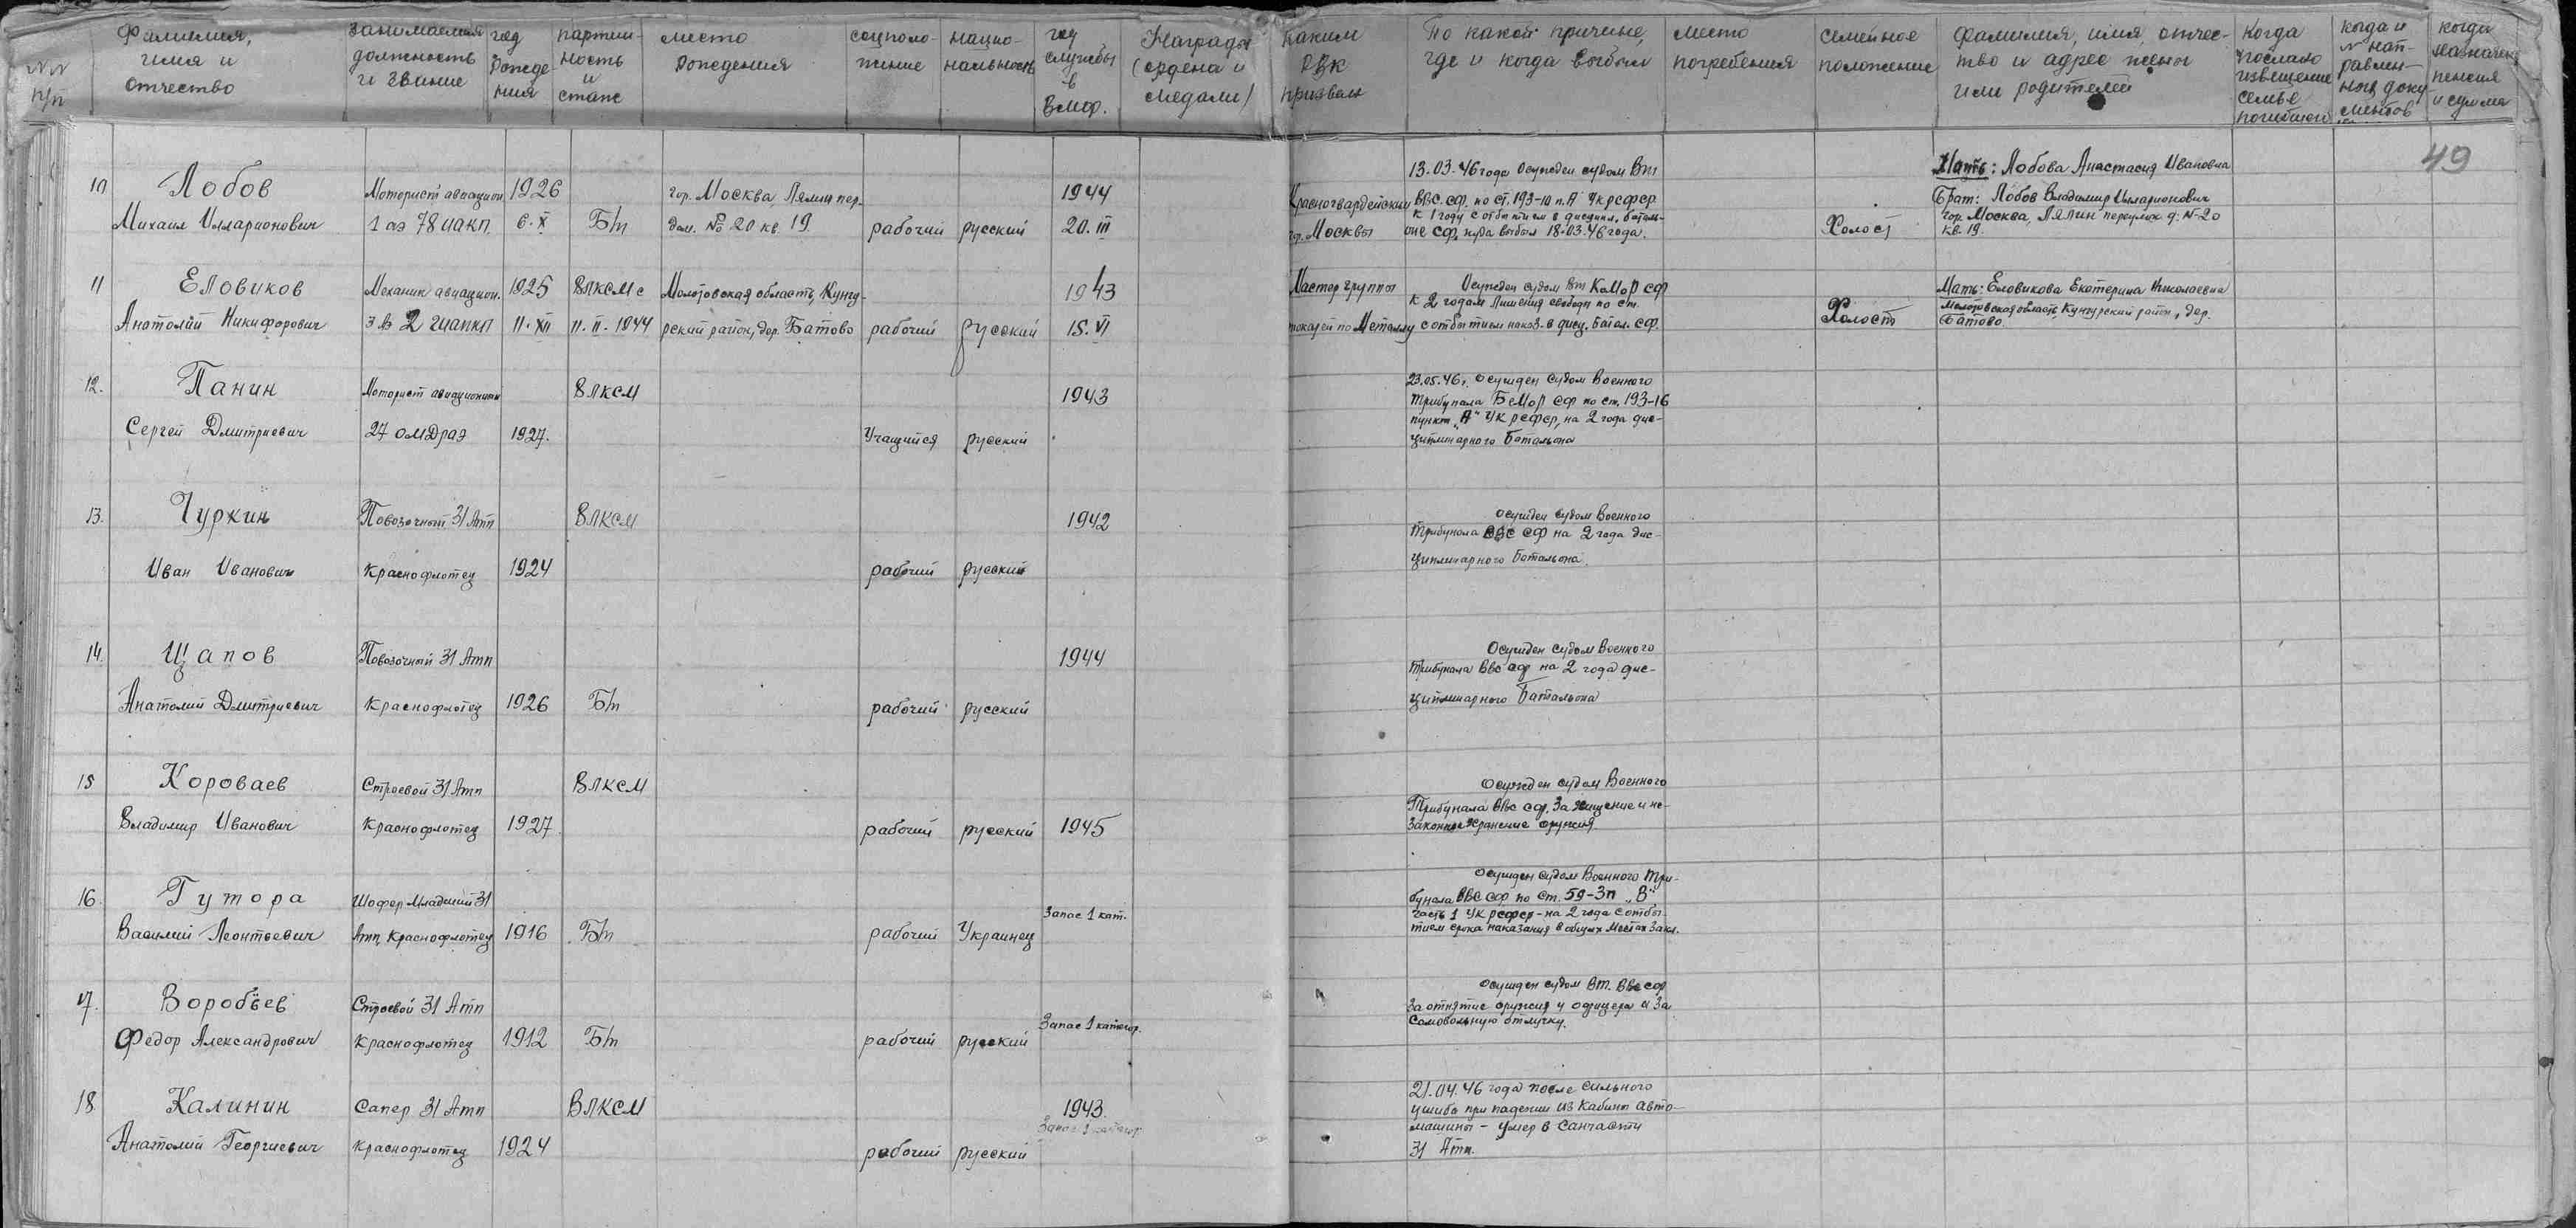 №№ п/п
Фамилия, имя и отчество
Занимаемая должность и звание
год рождения
партийность и стаж
место рождения
соцположение
национальность
год службы в ВМФ.
Награды (ордена и медали)
Каким РВК призван
По какой причине, где и когда выбыл
место погребения
семейное положение
Фамилия, имя, отчество и адрес жены или родителей
Когда послано извещение семье погибшего
когда и № направления документов
когда назначена пенсия и сумма
49
10
Лобов
Михаил Илларионович
Моторист авиацион
1 аэ 78 иакп.
1926
6. X
Б/п
гор. Москва, Лялин пер.
дом. № 20 кв. 19.
рабочий
русский
1944
20. III
Красногвардейский
гор. Москвы
13.03.46 года Осужден судом Вт
ВВС. СФ. по ст. 193-10 п. А УК РСФСР
к 1 году с отбытием в дисципл. баталь-
оне СФ, куда выбыл 18.03.46 года.
Холост
Мать: Лобова Анастасия Ивановна
Брат: Лобов Владимир Илларионович
гор. Москва, Лялин переулок д. №-20
кв. 19.
11
Еловиков
Анатолий Никифорович
Механик авиацион.
3 аэ 2 гиапкп
1925
11. XII
ВЛКСМ с
11. II. 1944
Молотовская область, Кунгу-
рский район, дер. Батово
рабочий
русский
1943
15. VI
Мастер группы
токарей по Металлу
Осужден судом Вт КаМоР СФ
к 2 годам Лишения свободы по ст.
с отбытием наказ. в дисц. батал. СФ.
Холост
Мать: Еловикова Екатерина Николаевна
Молотовская область, Кунгурский район, дер.
Батово.
12.
Панин
Сергей Дмитриевич
Моторист авиационный
27 омдраэ
1927.
ВЛКСМ
Учащийся
русский
1943
23.05.46 г. осужден судом Военного
трибунала БеМоР СФ по ст. 193-16
пункт „А" УК РСФСР, на 2 года дис-
циплинарного Батальона
13.
Чуркин
Иван Иванович
Повозочный 31 Атп
Краснофлотец
1924
ВЛКСМ
рабочий
русский
1942
осужден судом Военного
Трибунала ВВС СФ на 2 года дис-
циплинарного Батальона.
14.
Щапов
Анатолий Дмитриевич
Повозочный 31 Атп
Краснофлотец
1926
Б/п
рабочий
русский
1944
Осужден судом Военного
трибунала ВВС СФ на 2 года дис-
циплинарного Батальона
15
Короваев
Владимир Иванович
Строевой 31 Атп
Краснофлотец
1927
ВЛКСМ
рабочий
русский
1945
осужден судом Военного
Трибунала ВВС СФ. За хищение и не-
законное хранение оружия.
16
Гутора
Василий Леонтьевич
Шофер Младший 31
Атп, Краснофлотец
1916
Б/п
рабочий
Украинец
Запас 1 кат.
осужден судом Военного Три-
бунала ВВС СФ по ст. 59-3п „В"
часть 1 УК РСФСР - на 2 года с отбы-
тием срока наказания в общих Местах Закл.
17.
Воробьев
Федор Александрович
Строевой 31 Атп
Краснофлотец
1912
Б/п
рабочий
русский
Запас 1 категор.
осужден судом Вт. ВВС СФ
За отнятие оружия у офицера и За
самовольную отлучку.
18
Калинин
Анатолий Георгиевич
Сапер 31 Атп
Краснофлотец
1924
ВЛКСМ
рабочий
русский
1943
Запас 1 категор
21.04.46 года после сильного
ушиба при падении из кабины авто-
машины - умер в Санчасти
31 Атп.